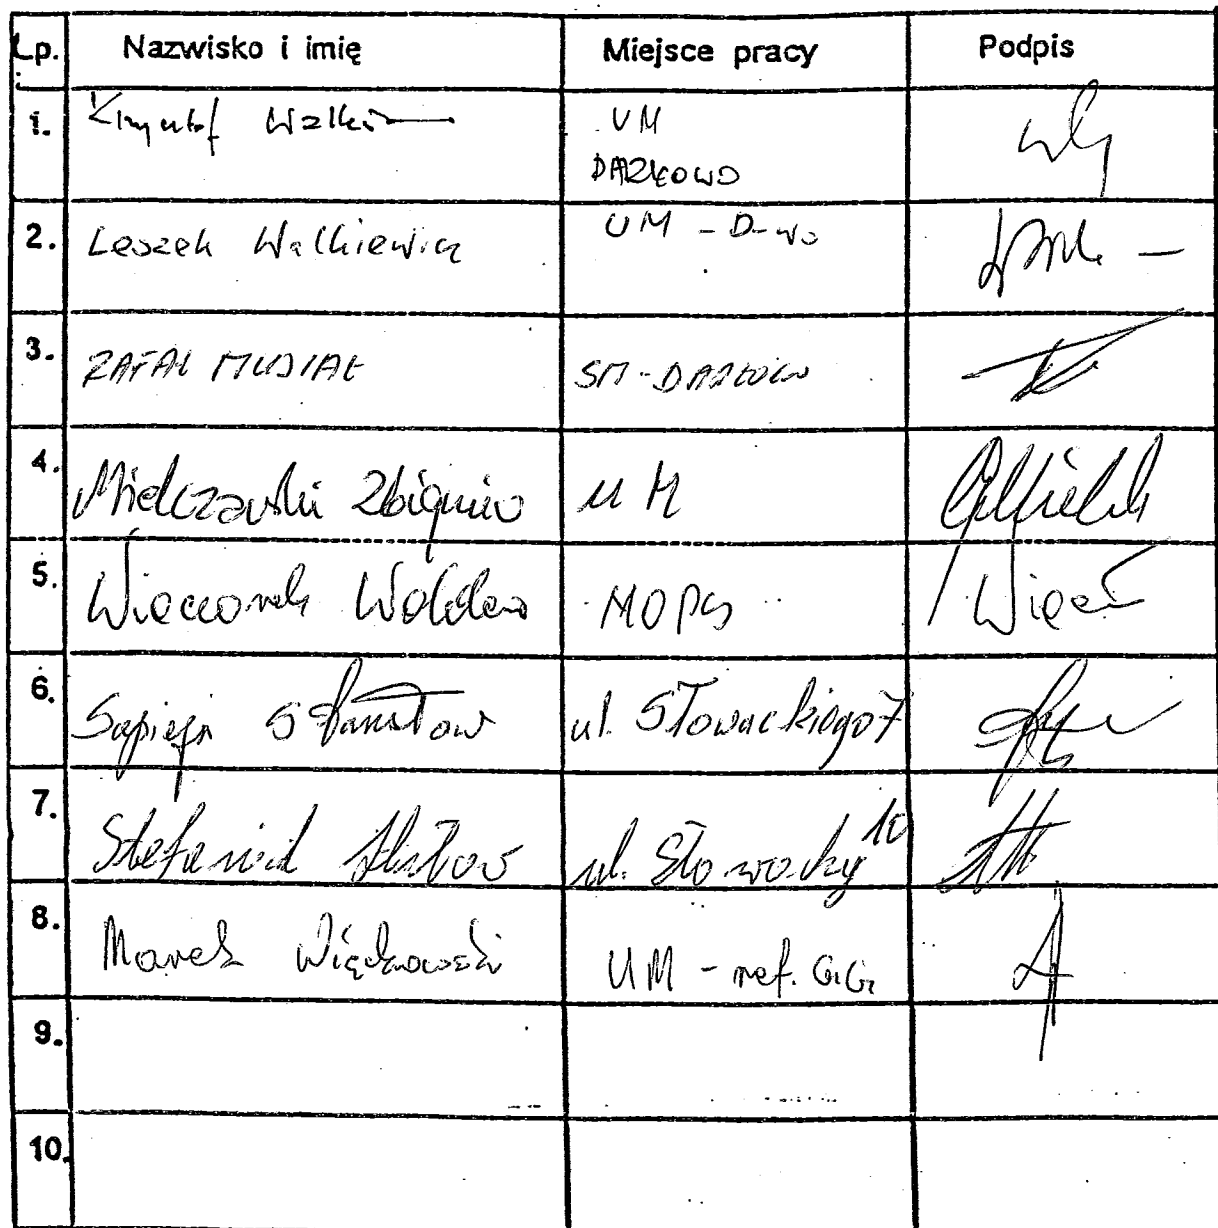 Lp. Nazwisko i imię Miejsce pracy Podpis
1. Krzysztof UM
DARŁOWO
2. Leszek Walkiewicz UM - D-wo
3. RAFAŁ MUSIAŁ SM - DARŁOWO
4. Mielczarski Zbigniew UM
5. Wieczorek MOPS
6. Sapieja Stanisław ul. Słowackiego 7
7. Stefaniuk ul. Słowackiego 10
8. Marek Więckowski UM - ref. GiG
9.
10.